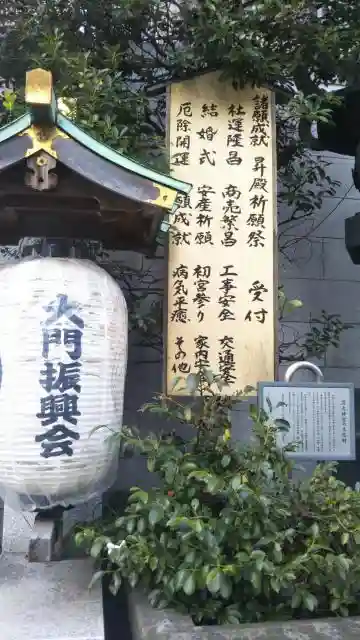 諸願成就 昇殿祈願祭 受付
社運隆昌 商売繁昌 工事安全 交通安全
結婚式 安産祈願 初宮参り 家内安全
厄除開運 願成就 病気平癒 その他
大門振興会